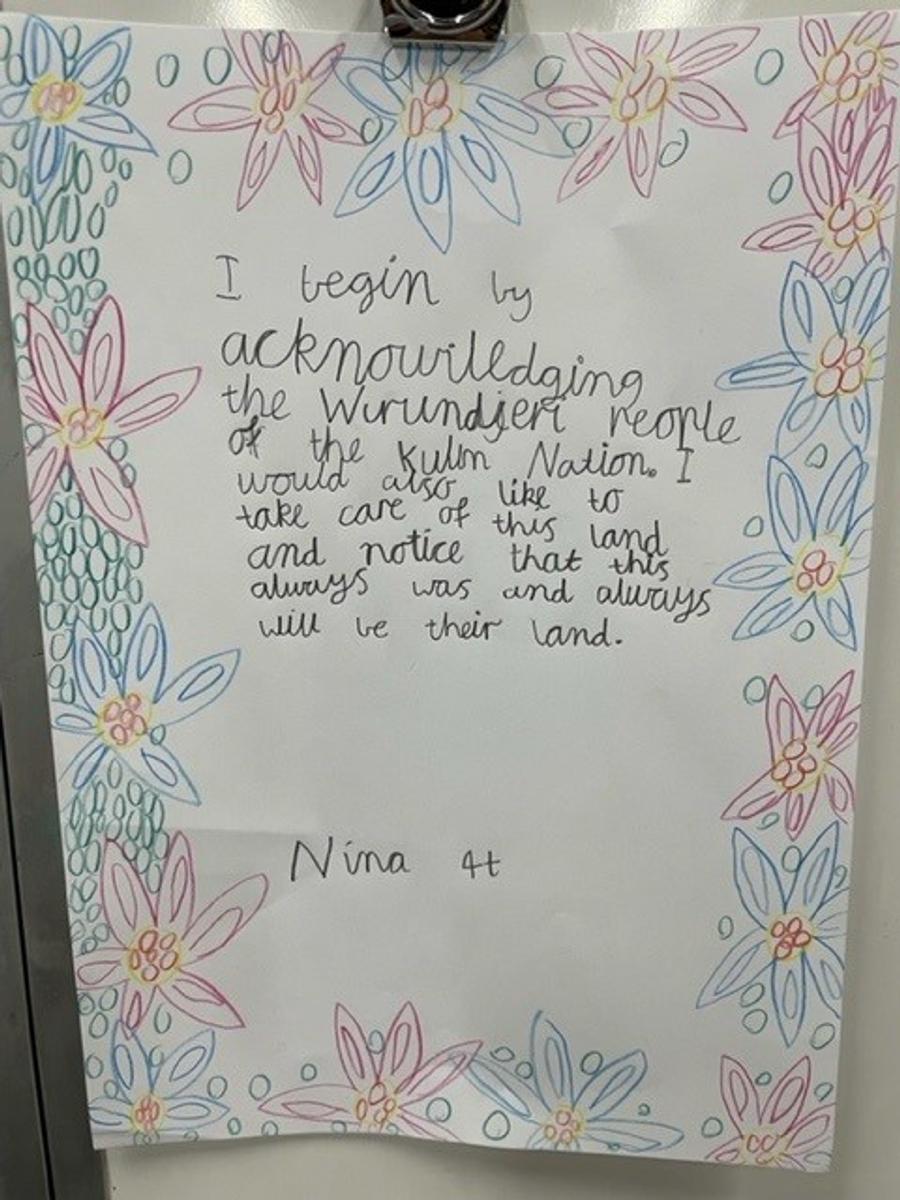 I begin by
acknowilledging
the Wurundjeri people
of the Kulin Nation. I
would also like to
take care of this land
and notice that this
always was and always
will be their land.
Nina 4t